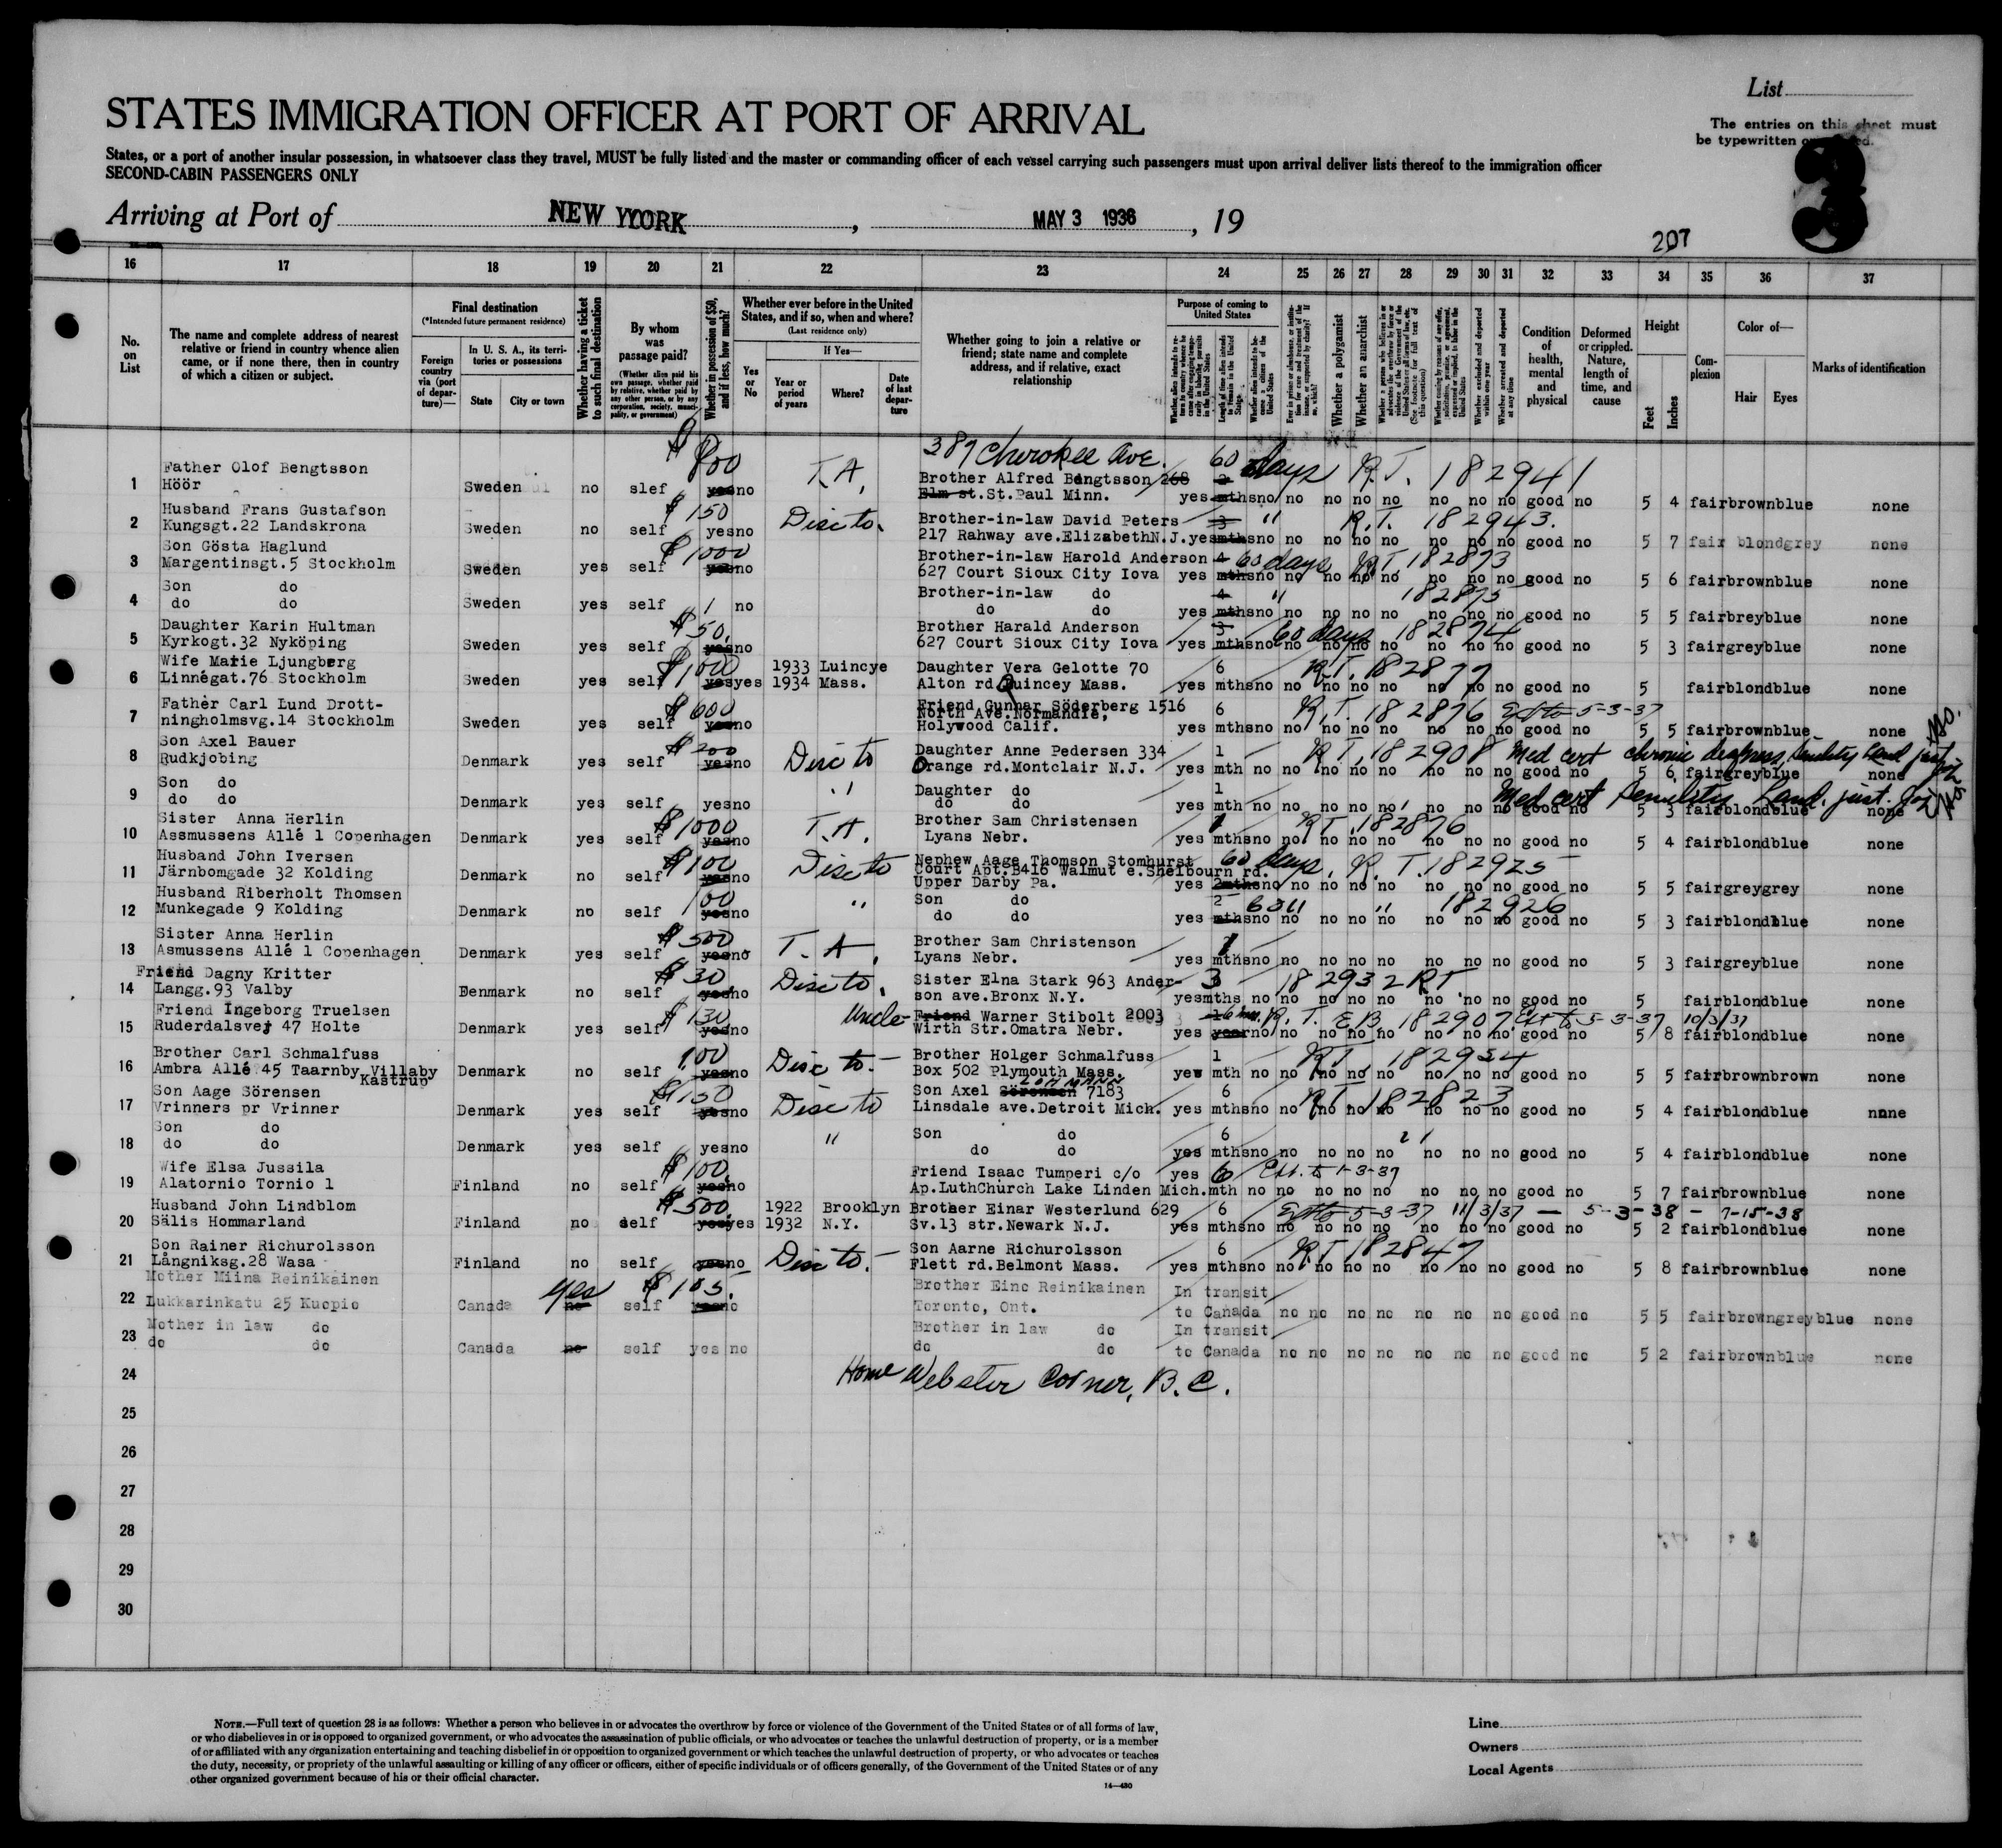 List
STATES IMMIGRATION OFFICER AT PORT OF ARRIVAL
The entries on this sheet must
be typewritten
States, or a port of another insular possession, in whatsoever class they travel, MUST be fully listed and the master or commanding officer of each vessel carrying such passengers must upon arrival deliver lists thereof to the immigration officer
SECOND-CABIN PASSENGERS ONLY
3
Arriving at Port of NEW YYORK , MAY 3 1936 , 19
207
16 17 18 19 20 21 22 23 24 25 26 27 28 29 30 31 32 33 34 35 36 37
No. on List
The name and complete address of nearest relative or friend in country whence alien came, or if none there, then in country of which a citizen or subject.
Final destination
(*Intended future permanent residence)
Foreign country via (port of departure)—
In U. S. A., its territories or possessions
State City or town
Whether having a ticket to such final destination
By whom was passage paid?
(Whether alien paid his own passage, whether paid by relative, whether paid by any other person, or by any corporation, society, municipality, or government)
Whether in possession of $50, and if less, how much?
Whether ever before in the United States, and if so, when and where?
(Last residence only)
Yes or No
If Yes—
Year or period of years Where? Date of last departure
Whether going to join a relative or friend; state name and complete address, and if relative, exact relationship
Purpose of coming to United States
Whether a polygamist
Whether an anarchist
Condition of health, mental and physical
Deformed or crippled. Nature, length of time, and cause
Height
Feet Inches
Complexion
Color of—
Hair Eyes
Marks of identification
$800 387 Cherokee Ave. 60 days R.T. 182941
1 Father Olof Bengtsson
Höör Sweden no slef yesno T.A. Brother Alfred Bengtsson 268
Elm st.St.Paul Minn. yes mthsno no no no no no no no good no 5 4 fairbrownblue none
2 Husband Frans Gustafson
Kungsgt.22 Landskrona Sweden no self $150 yesno Disc to. Brother-in-law David Peters 3 " R.T. 182943.
217 Rahway ave.ElizabethN.J.yesmthsno no no no no no no no good no 5 7 fair blondgrey none
3 Son Gösta Haglund
Margentinsgt.5 Stockholm Sweden yes self $1000 yesno Brother-in-law Harold Anderson 4 60 days RT 182873
627 Court Sioux City Iova yes mthsno no no no no no no no good no 5 6 fairbrownblue none
4 Son do
do do Sweden yes self 1 no Brother-in-law do 4 " 182875
do do yes mthsno no no no no no no no good no 5 5 fairbreyblue none
5 Daughter Karin Hultman
Kyrkogt.32 Nyköping Sweden yes self $50. yesno Brother Harald Anderson 3 60 days 182874
627 Court Sioux City Iova yes mthsno no no no no no no no good no 5 3 fairgreyblue none
6 Wife Marie Ljungberg
Linnégat.76 Stockholm Sweden yes self $100 yesyes 1933 Luincye
1934 Mass. Daughter Vera Gelotte 70 6 R.T. 182877
Alton rd Quincey Mass. yes mthsno no no no no no no no good no 5 fairblondblue none
7 Father Carl Lund Drott-
ningholmsvg.14 Stockholm Sweden yes self $600 yesno Friend Gunnar Söderberg 1516 6 R.T. 182876 Ext to 5-3-37
North Ave.Normandie,
Holywood Calif. yes mthsno no no no no no no no good no 5 5 fairbrownblue none
8 Son Axel Bauer
Rudkjobing Denmark yes self $200 yesno Disc to Daughter Anne Pedersen 334 1 RT. 182908 Med cert chronic deafness, senility Land just
Orange rd.Montclair N.J. yes mth no no no no no no no no good no 5 6 fairgreyblue none
9 Son do
do do Denmark yes self yesno " Daughter do 1 Med cert Senility Land. just.
do do yes mth no no no no no no no no good no 5 3 fairblondblue none
10 Sister Anna Herlin
Assmussens Allé 1 Copenhagen Denmark yes self $1000 yesno T.A. Brother Sam Christensen 1 RT. 182876
Lyans Nebr. yes mthsno no no no no no no no good no 5 4 fairblondblue none
11 Husband John Iversen
Järnbomgade 32 Kolding Denmark no self $100 yesno Disc to Nephew Aage Thomson Stomhurst 60 days. R.T. 182925
Court Apt.B416 Walmut e.Shelbourn rd.
Upper Darby Pa. yes 2mthsno no no no no no no no good no 5 5 fairgreygrey none
12 Husband Riberholt Thomsen
Munkegade 9 Kolding Denmark no self 100 yesno " Son do 2 60 " " 182926
do do yes mthsno no no no no no no no good no 5 3 fairblondblue none
13 Sister Anna Herlin
Asmussens Allé 1 Copenhagen Denmark yes self $500 yesno T.A. Brother Sam Christenson 1
Lyans Nebr. yes mthsno no no no no no no no good no 5 3 fairgreyblue none
14 Friend Dagny Kritter
Langg.93 Valby Denmark no self $30 yesno Disc to. Sister Elna Stark 963 Ander- 3 182932 RT
son ave.Bronx N.Y. yesmths no no no no no no no no good no 5 fairblondblue none
15 Friend Ingeborg Truelsen
Ruderdalsvej 47 Holte Denmark yes self $130 yesno Uncle- Friend Warner Stibolt 2003 6 mo. R.T. E.B. 182907. Ext to 5-3-37 10/3/37
Wirth Str.Omatra Nebr. yes yearno no no no no no no no good no 5 8 fairblondblue none
16 Brother Carl Schmalfuss
Ambra Allé 45 Taarnby Villaby
Kastrup Denmark no self 100 yesno Disc to- Brother Holger Schmalfuss 1 RT 182954
Box 502 Plymouth Mass. yew mth no no no no no no no no good no 5 5 fairbrownbrown none
17 Son Aage Sörensen
Vrinners pr Vrinner Denmark yes self $150 yesno Disc to Son Axel Sörensen LOHMANN 7183 6 RT 182823
Linsdale ave.Detroit Mich. yes mthsno no no no no no no no good no 5 4 fairblondblue nnne
18 Son do
do do Denmark yes self yesno " Son do 6 "
do do yes mthsno no no no no no no no good no 5 4 fairblondblue none
19 Wife Elsa Jussila
Alatornio Tornio 1 Finland no self $100. yesno Friend Isaac Tumperi c/o yes 6 Ext. to 1-3-37
Ap.LuthChurch Lake Linden Mich.mth no no no no no no no no good no 5 7 fairbrownblue none
20 Husband John Lindblom
Sälis Hommarland Finland no self $500. yesyes 1922 Brooklyn
1932 N.Y. Brother Einar Westerlund 629 6 Ext to 5-3-37 11/3/37 — 5-3-38 - 7-15-38
Sv.13 str.Newark N.J. yes mthsno no no no no no no no good no 5 2 fairblondblue none
21 Son Rainer Richurolsson
Långniksg.28 Wasa Finland no self yesno Disc to.- Son Aarne Richurolsson 6 RT 182847
Flett rd.Belmont Mass. yes mthsno no no no no no no no good no 5 8 fairbrownblue none
22 Mother Miina Reinikainen
Lukkarinkatu 25 Kuopio Canada yes no self $105. yesno Brother Eino Reinikainen In transit
Toronto, Ont. to Canada no no no no no no no good no 5 5 fairbrowngreyblue none
23 Mother in law do
do do Canada no self yes no Brother in law do In transit
do do to Canada no no no no no no no good no 5 2 fairbrownblue none
24 Home Webster Corner, B.C.
25
26
27
28
29
30
NOTE.—Full text of question 28 is as follows: Whether a person who believes in or advocates the overthrow by force or violence of the Government of the United States or of all forms of law,
or who disbelieves in or is opposed to organized government, or who advocates the assassination of public officials, or who advocates or teaches the unlawful destruction of property, or is a member
of or affiliated with any organization entertaining and teaching disbelief in or opposition to organized government or which teaches the unlawful destruction of property, or who advocates or teaches
the duty, necessity, or propriety of the unlawful assaulting or killing of any officer or officers, either of specific individuals or of officers generally, of the Government of the United States or of any
other organized government because of his or their official character.
14—480
Line
Owners
Local Agents